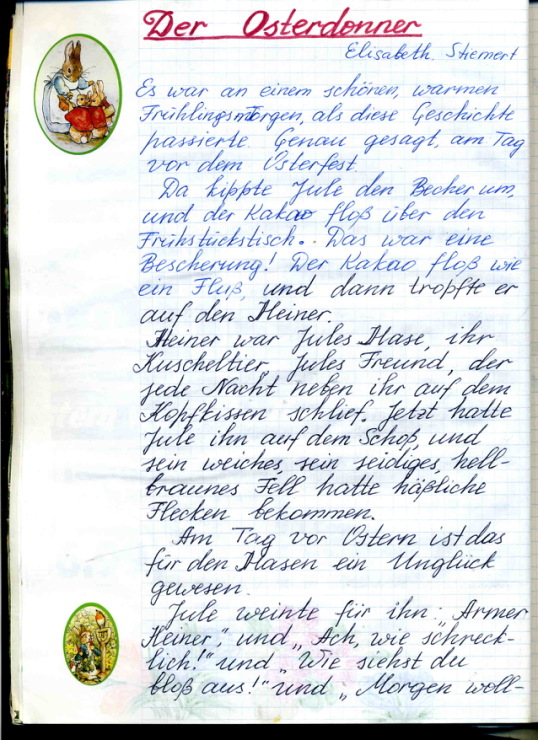 Der Osterdonner
Elisabeth Stiemert
Es war an einem schönen, warmen
Frühlingsmorgen, als diese Geschichte
passierte. Genau gesagt, am Tag
vor dem Osterfest.
Da kippte Jule den Becher um,
und der Kakao floß über den
Frühstückstisch. Das war eine
Bescherung! Der Kakao floß wie
ein Fluß, und dann tropfte er
auf den Heiner.
Heiner war Jules Hase, ihr
Kuscheltier, Jules Freund, der
jede Nacht neben ihr auf dem
Kopfkissen schlief. Jetzt hatte
Jule ihn auf dem Schoß, und
sein weiches, sein seidiges, hell-
braunes Fell hatte häßliche
Flecken bekommen.
Am Tag vor Ostern ist das
für den Hasen ein Unglück
gewesen.
Jule weinte für ihn: „Armer
Heiner" und „Ach, wie schreck-
lich!" und „Wie siehst du
bloß aus!" und „Morgen woll-